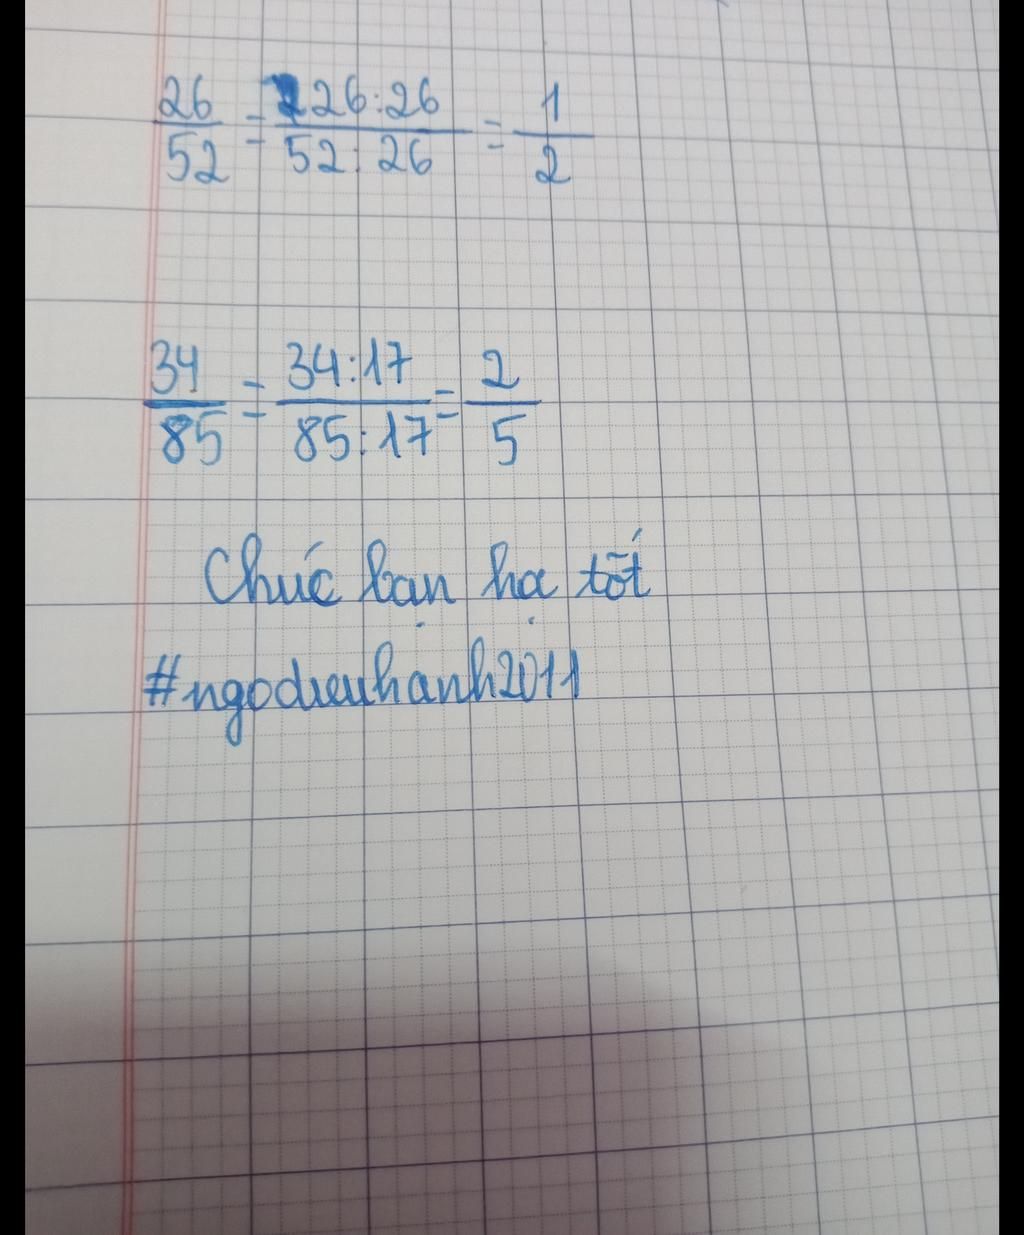 26/52 = 26:26/52:26 = 1/2
34/85 = 34:17/85:17 = 2/5
Chúc bạn họ tốt
#ngodieuhanh2011